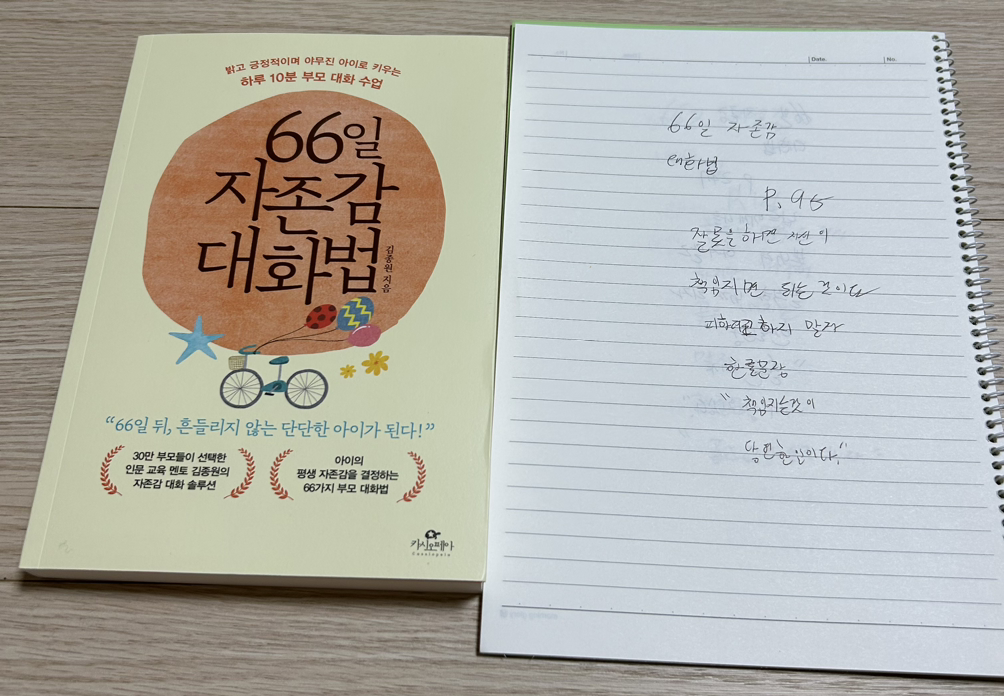 밝고 긍정적이며 야무진 아이로 키우는
하루 10분 부모 대화 수업
66일
자존감
대화법
김종원 지음
“66일 뒤, 흔들리지 않는 단단한 아이가 된다!”
30만 부모들이 선택한
인문 교육 멘토 김종원의
자존감 대화 솔루션
아이의
평생 자존감을 결정하는
66가지 부모 대화법
카시오페아
Cassiopeia
Date.
No.
66일 자존감
대화법
P. 95
잘못을 하면
책임지면 되는 것이다
피하려고 하지 말자
한줄문장
" 책임지는것이
당연한 일이다."